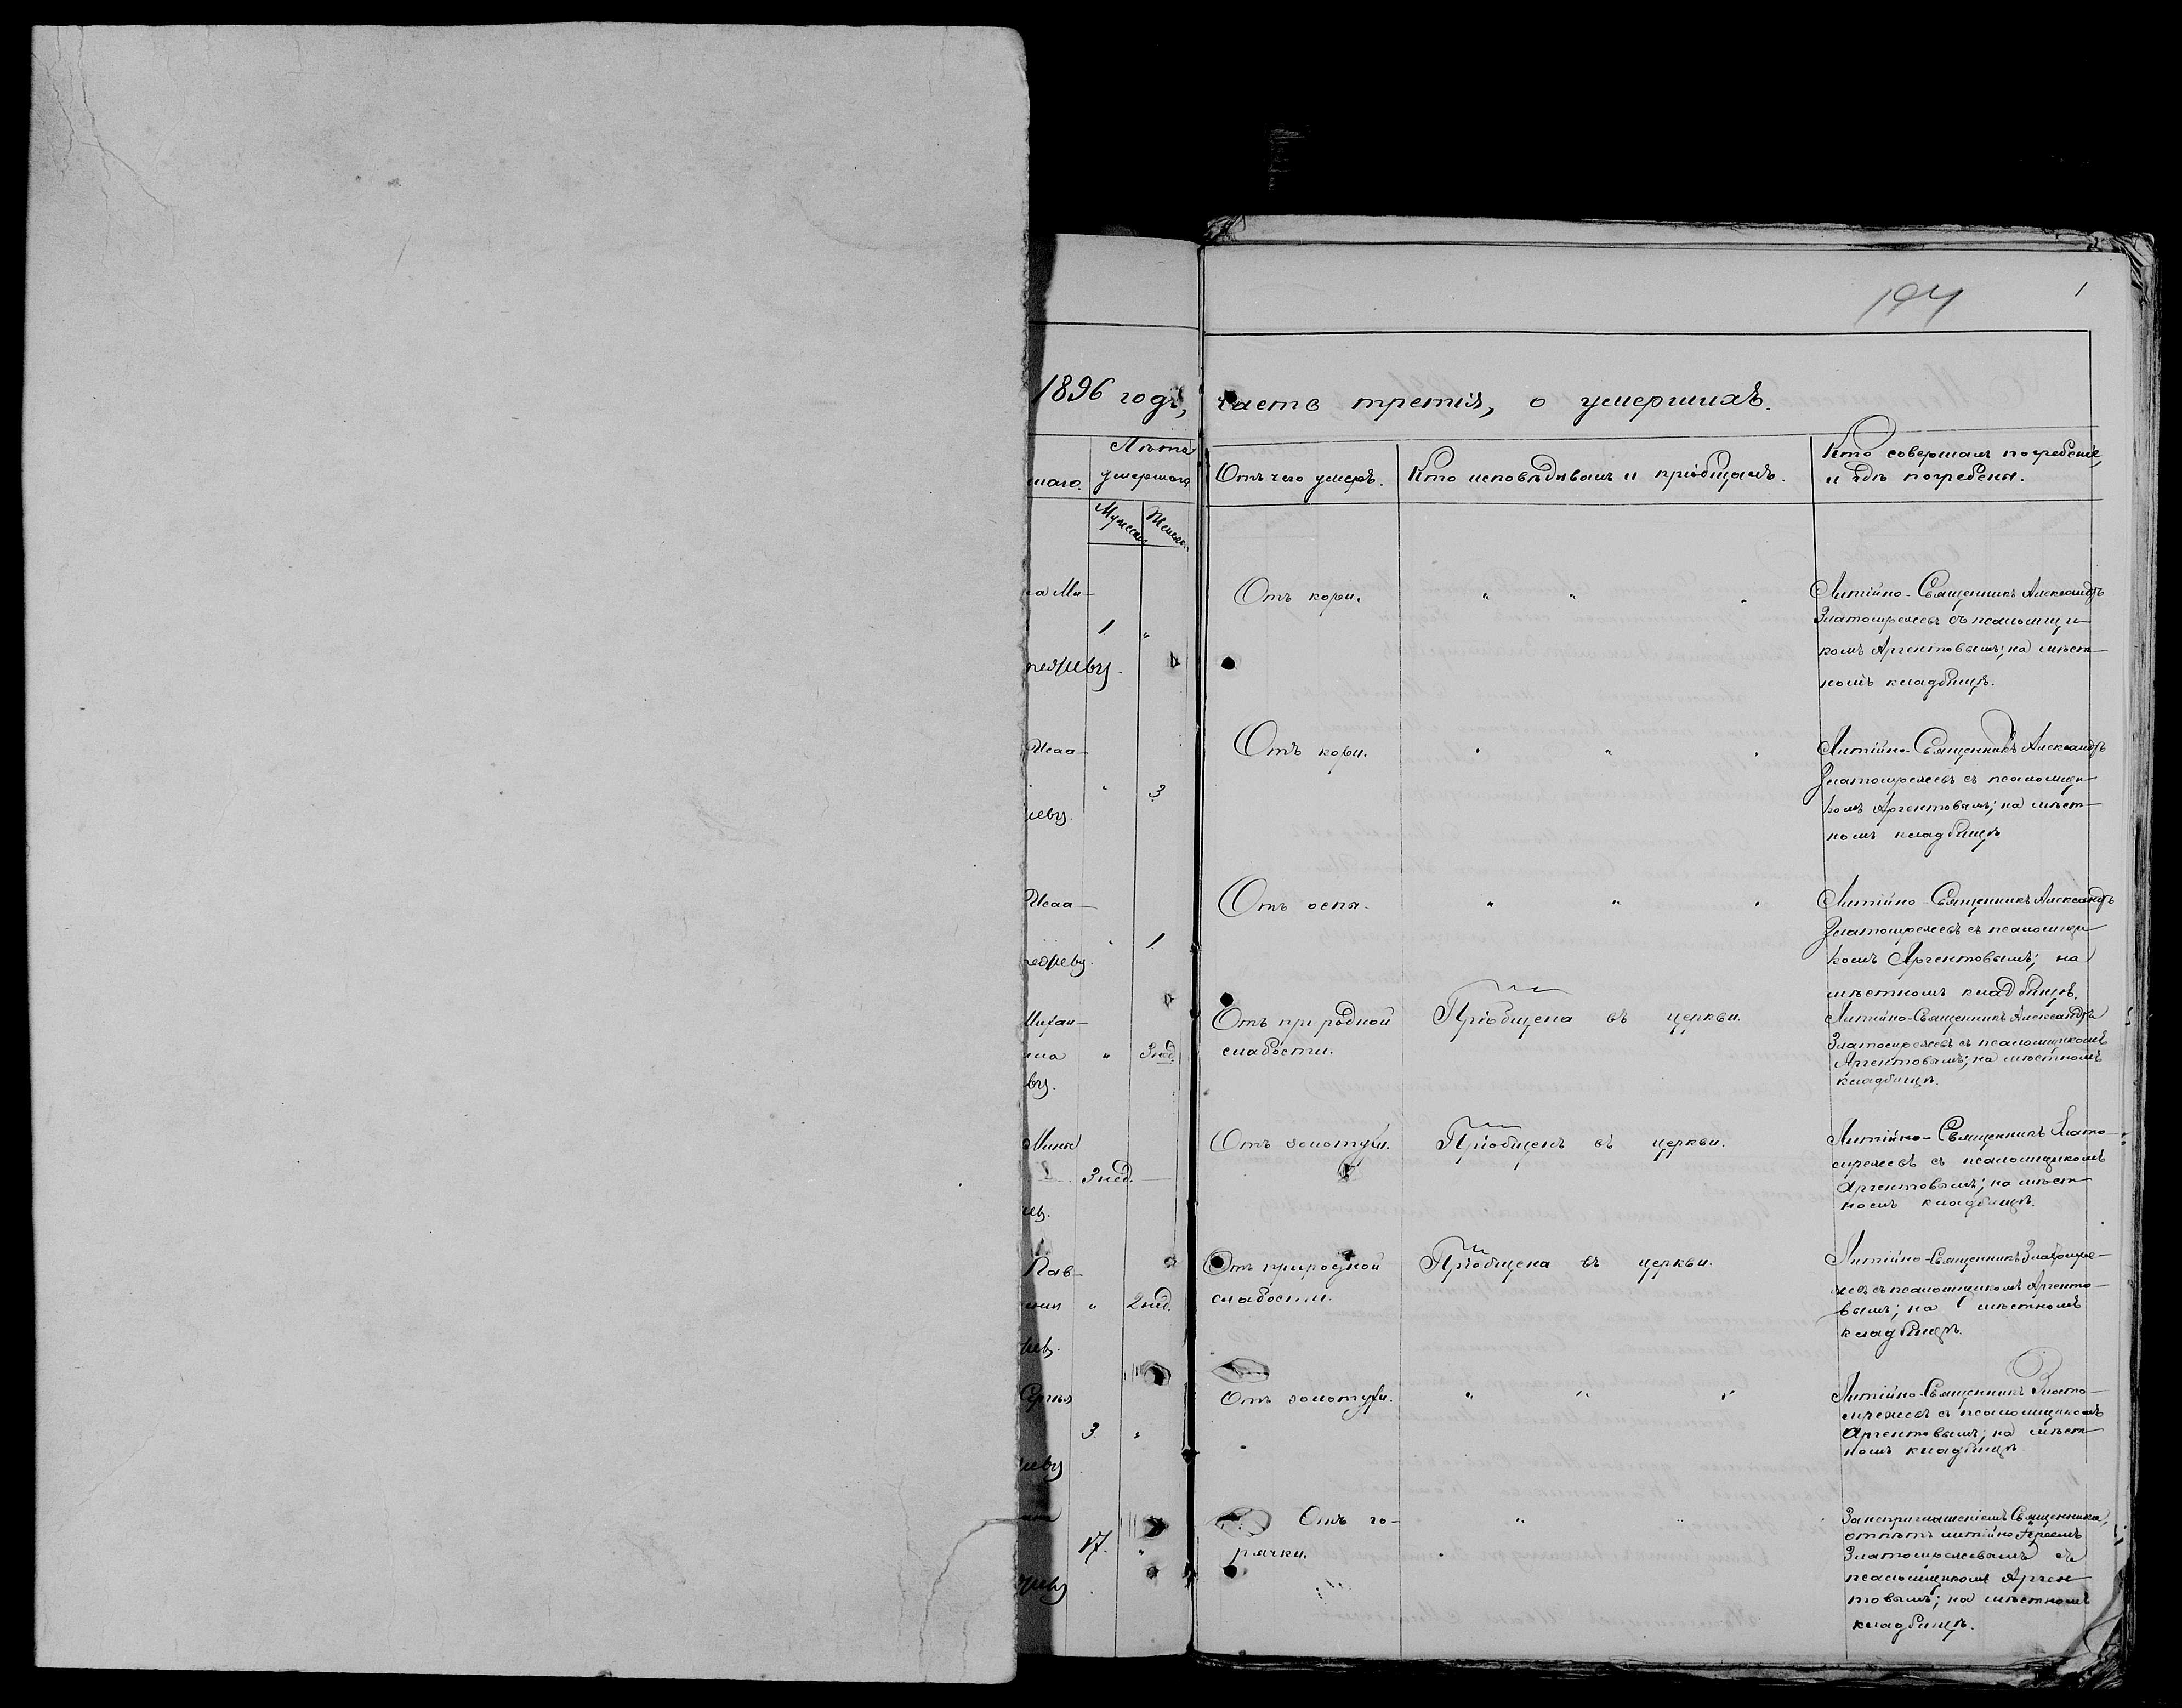 194 1
1896 годъ, часть третія, о умершихъ.
шаго.
Лѣта умершаго
Мужеск. Женск.
Отъ чего умеръ.
Кто исповѣдывалъ и пріобщалъ.
Кто совершалъ погребеніе,
и гдѣ погребены.
1 "
Отъ кори. " " "
Литійно-Священникъ Александръ
Златомрежевъ съ псаломщи-
комъ Аргентовымъ; на мѣст-
номъ кладбищѣ.
Исаа-
" 3
Отъ кори. " " "
Литійно-Священникъ Александръ
Златомрежевъ съ псаломщи-
комъ Аргентовымъ; на мѣст-
номъ кладбищѣ
Исаа-
" 1.
Отъ оспы. " " "
Литійно-Священникъ Александръ
Златомрежевъ съ псаломщи-
комъ Аргентовымъ; на
мѣстномъ кладбищѣ.
Михаи-
" 3 нед.
Отъ природной
слабости.
Пріобщена въ церкви.
Литійно-Священникъ Александръ
Златомрежевъ съ псаломщикомъ
Аргентовымъ; на мѣстномъ
кладбищѣ.
3 нед.
Отъ золотухи.
Пріобщенъ въ церкви.
Литійно-Священникъ Злато-
мрежевъ съ псаломщикомъ
Аргентовымъ; на мѣст-
номъ кладбищѣ.
Пав-
" 2 нед.
Отъ природной
слабости.
Пріобщена въ церкви.
Литійно-Священникъ Златомре-
жевъ съ псаломщикомъ Аргенто-
вымъ; на мѣстномъ
кладбищѣ.
Сергѣя
3. "
Отъ золотухи. " " "
Литійно-Священникъ Злато-
мрежевъ съ псаломщикомъ
Аргентовымъ; на мѣст-
номъ кладбищѣ.
17. "
Отъ го-
рячки. " "
За неприглашеніемъ Священника,
отпѣтъ литійно Іереемъ
Златомрежевымъ съ
псаломщикомъ Арген-
товымъ; на мѣстномъ
кладбищѣ.